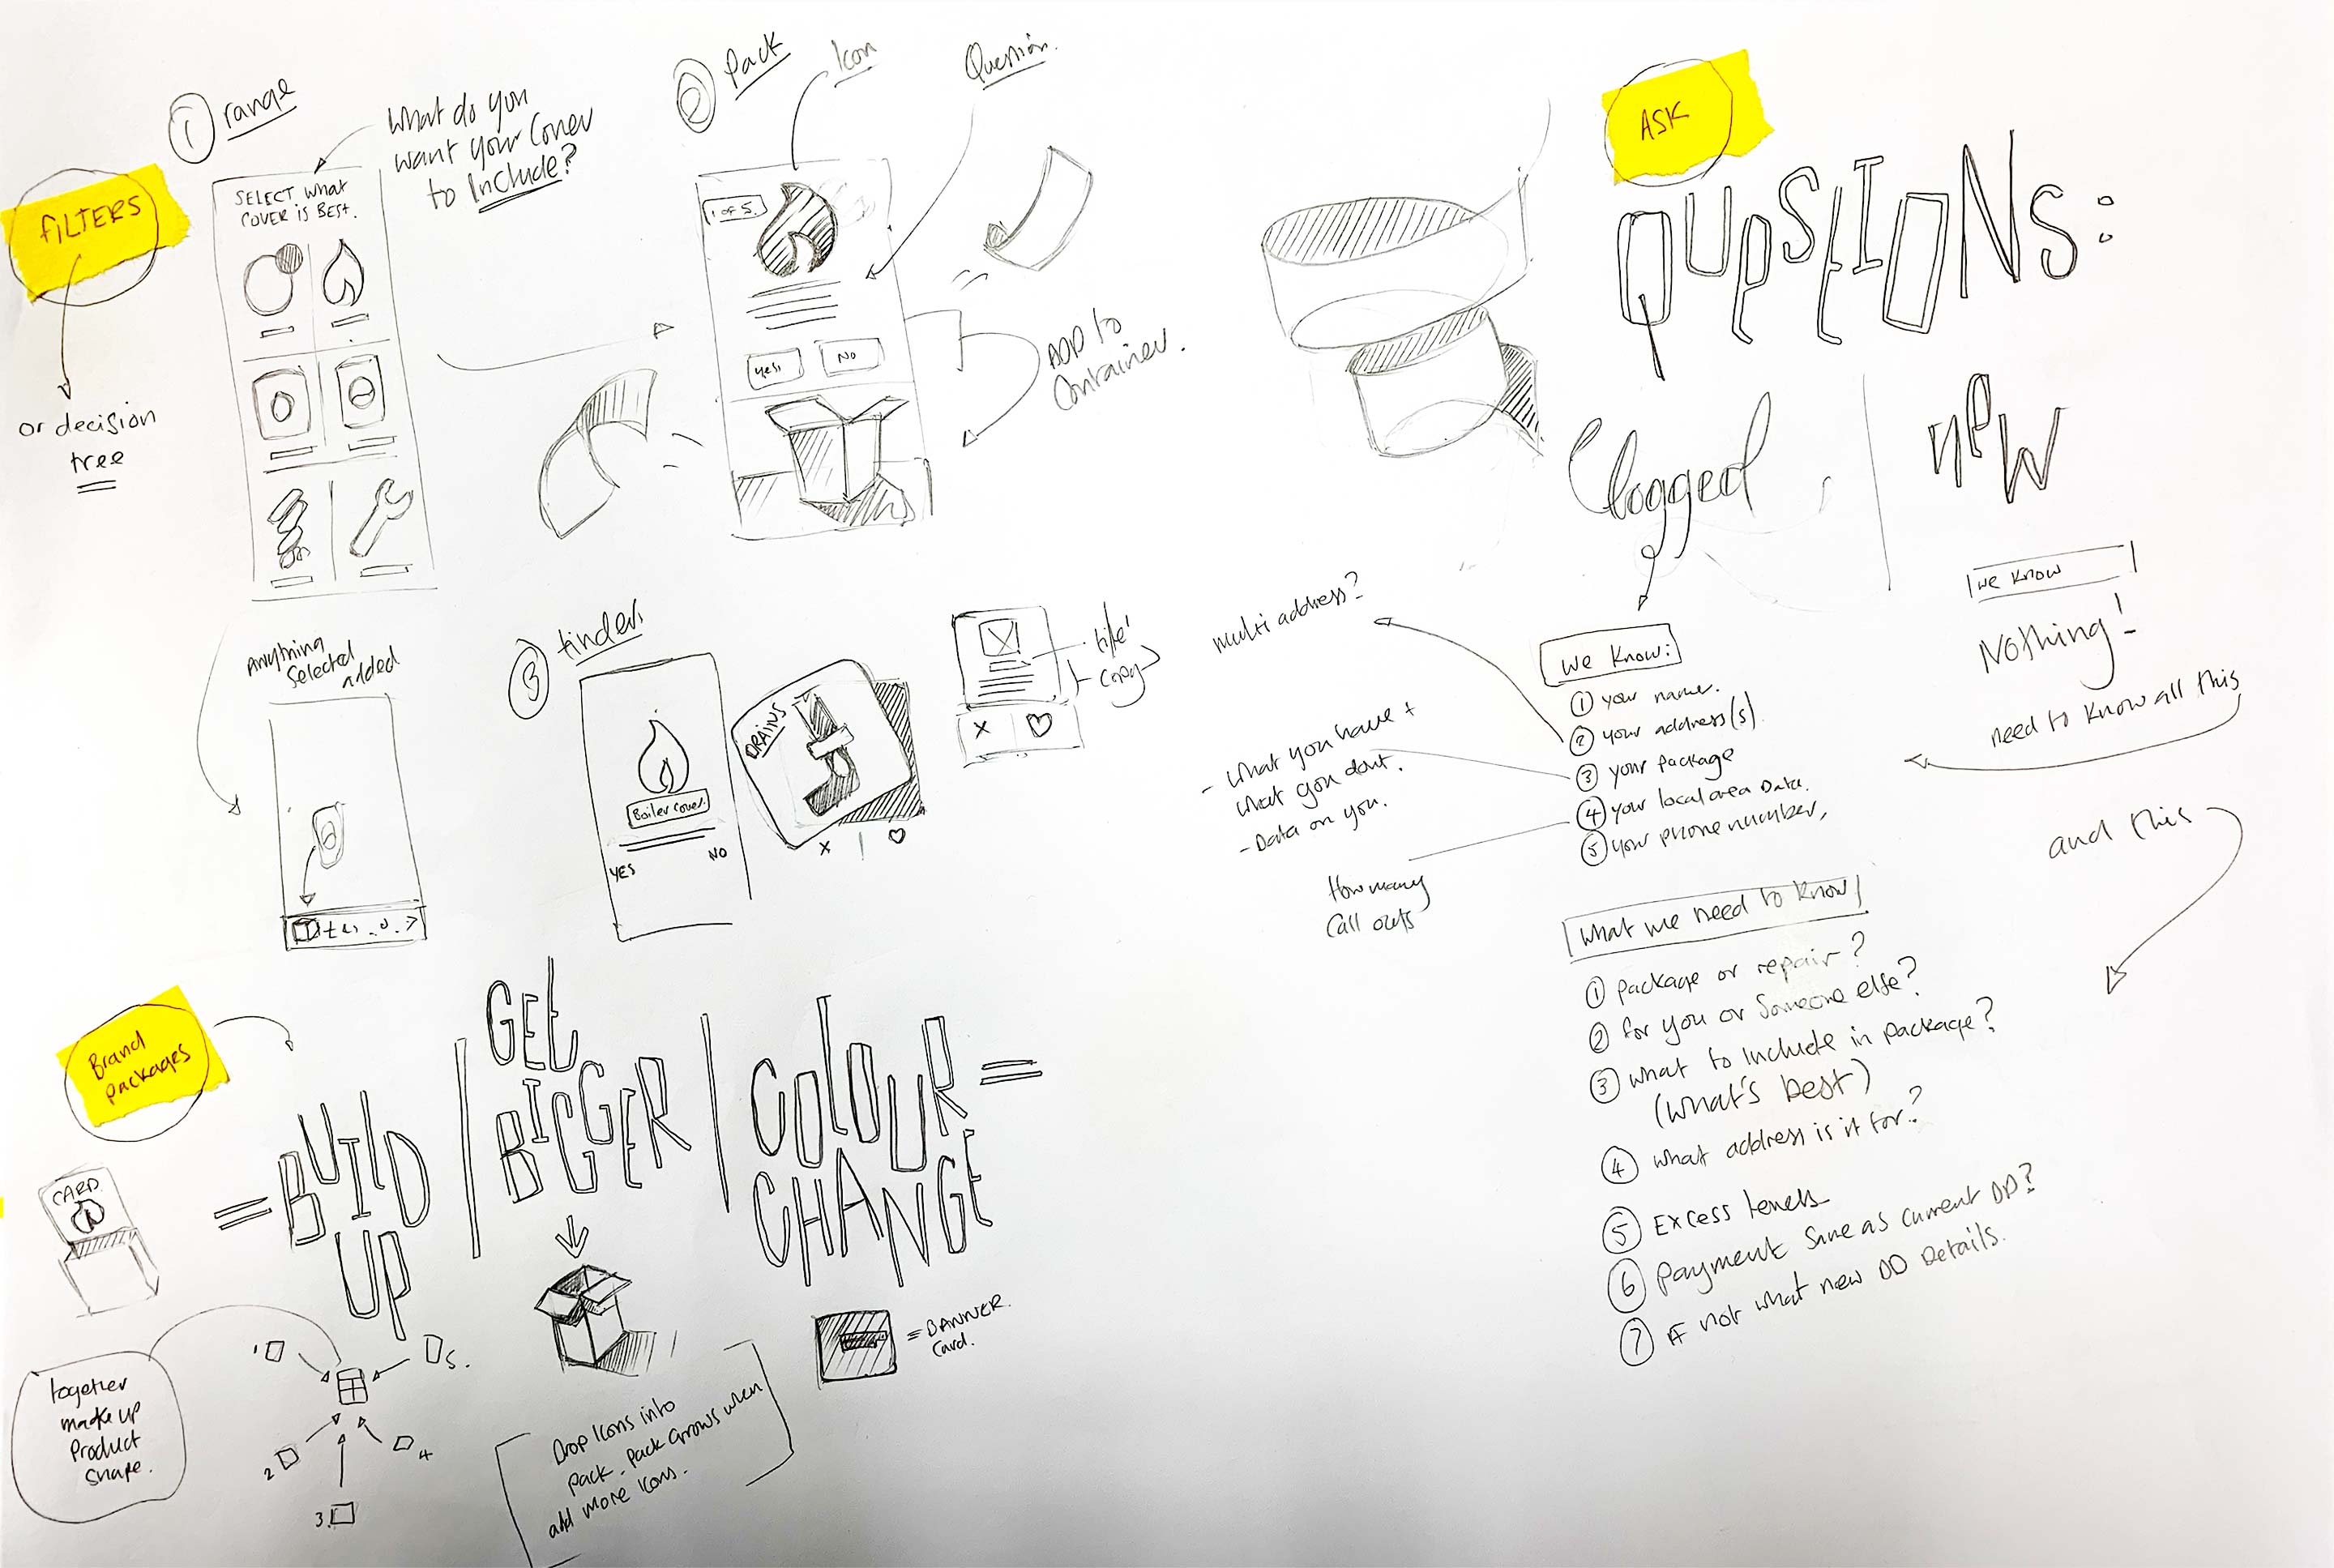 FILTERS
or decision
tree
① range
What do you
want your Cover
to Include?
SELECT what
COVER is BEST.
Anything
Selected
added
② Pack
Icon
Question.
1 of 5.
Yes
No
ADD to
Container.
③ tinder.
Boiler Cover.
YES
NO
DRAINS
X
X
title
Copy
Brand
packages
CARD
= BUILD
UP
GET
BIGGER
COLOUR =
CHANGE
= BANNER
Card.
together
make up
Product
Shape.
1
2
3.
4
5.
Drop Icons into
pack. Pack Grows when
add more Icons.
ASK
QUESTIONS:
logged
new
we know:
① your name.
② your address(s).
③ your package
④ your local area Data.
⑤ your phone number,
multi address?
- What you have +
what you dont.
- Data on you.
How many
Call outs
we know
Nothing!
need to know all this
and this
What we need to know
① package or repair?
② for you or Someone else?
③ what to Include in package?
(What's best)
④ what address is it for?
⑤ Excess levels
⑥ payment Same as current DD?
⑦ If not what new DD Details.